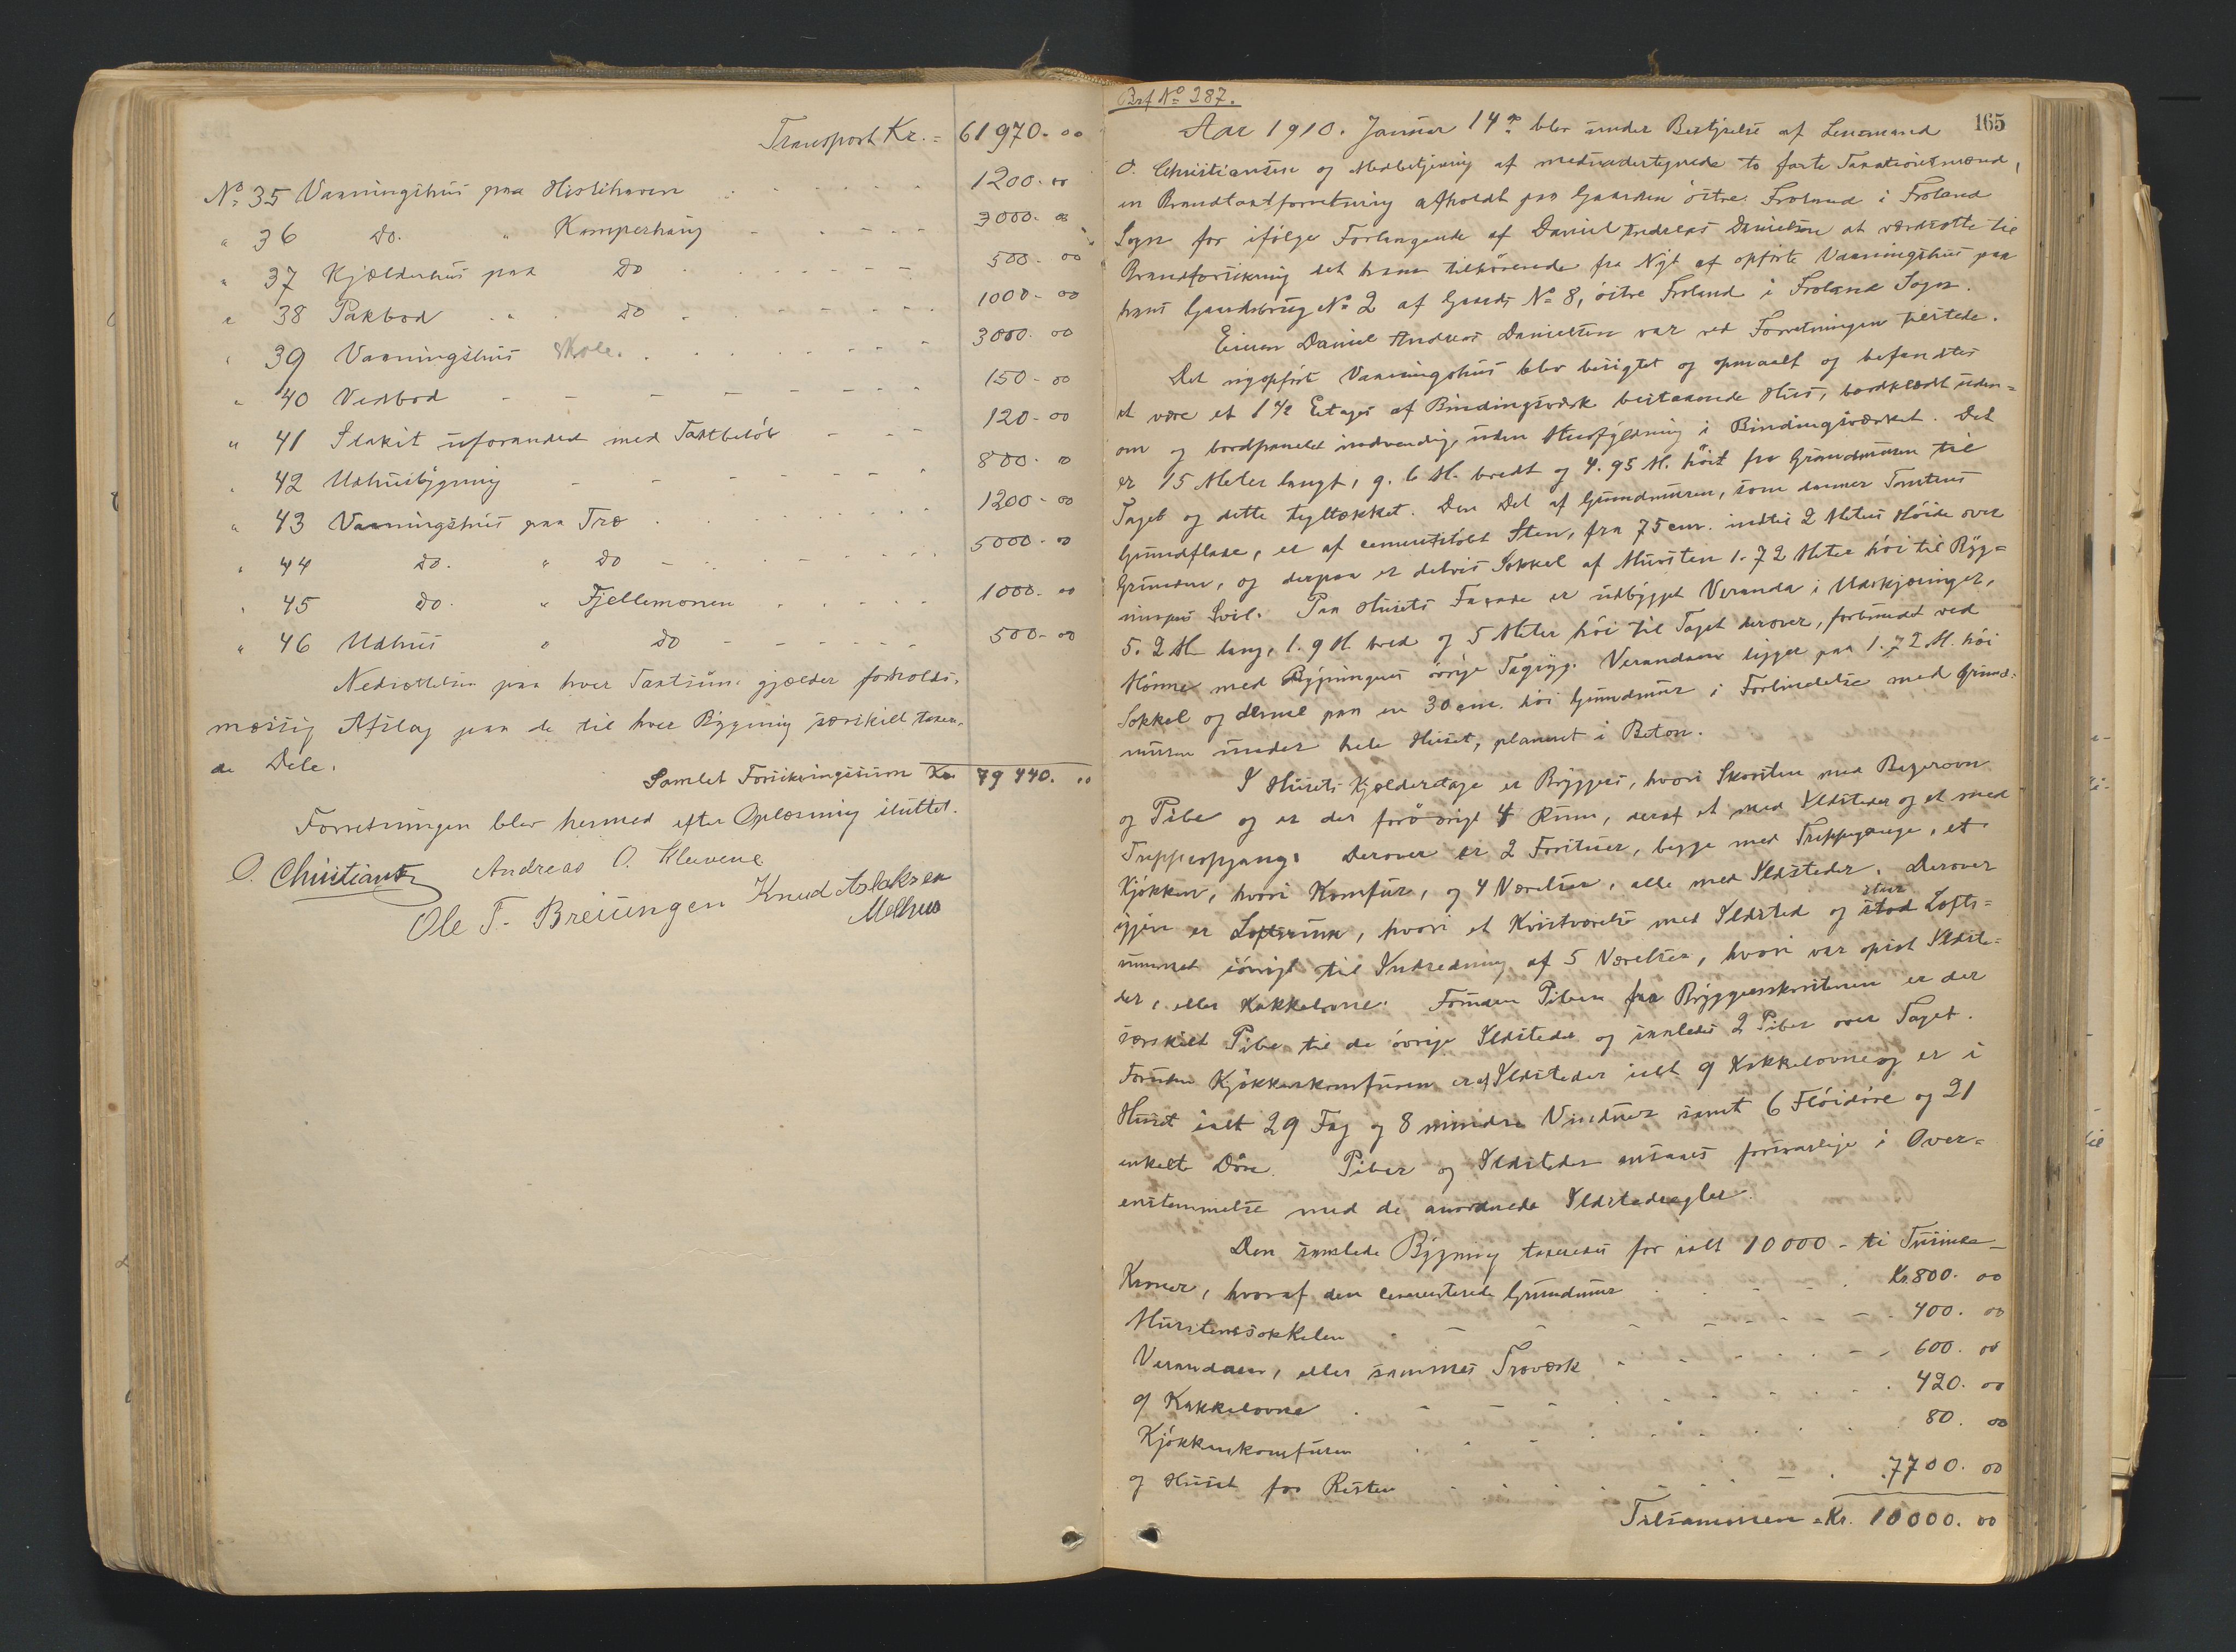 Transport Kr. = 61970. 00
No. 35 Vaaningshus paa Hislihaven . . . . . . 1200. 00
" 36 Do. " Kamperhaug - . - - - 3000. 00
" 37 Kjælderhus paa Do . . . . . - - 500. 00
" 38 Pakbod . " . Do . . . . - - - . 1000. 00
" 39 Vaaningshus Skole . . . . . . . 3000. 00
" 40 Vedbod - - - - - - - 150. 00
" 41 Stakit uforandret med Taxtbeløb - - - 120. 00
" 42 Udhusbygning - - - - - - 800. 00
" 43 Vaaningshus paa Træ . . . . . . . 1200. 00
" 44 Do. " Do - . . . - - . . 5000. 00
" 45 Do. " Fjellemonen . . . . . 1000. 00
" 46 Udhus " Do - - - - - - 500. 00
Nedsættelsen paa hver Taxtsum gjælder forholds-
mæssig Afslag paa de til hver Bygning særskilt taxere-
de Dele.
Samlet Forsikringssum Kr. 79440. 00
Forretningen blev hermed efter Oplæsning sluttet.
O. Christiansen Andreas O. Klevene
Ole T. Breiungen Knud Aslaksen
Melhus
165
Brf No 287.
Aar 1910. Januar 14de blev under Bestyrelse af Lensmand
O. Christiansen og Medbetjening af medundertegnede to faste Taxationsmænd,
en Brandtaxtforretning afholdt paa Gaarden östre Froland i Froland
Sogn for ifølge Forlangende af Daniel Andreas Danielsen at værdsætte til
Brandforsikring det ham tilhørende fra Nyt af opførte Vaaningshus paa
hans Gaardsbrug No 2 af Gaards No 8, östre Froland i Froland Sogn.
Eieren Daniel Andreas Danielsen var ved Forretningen tilstede.
Det nyopførte Vaaningshus blev besigtet og opmaalt og befandtes
at være et 1 1/2 Etages af Bindingsværk bestaaende Hus, bordklædt uden-
om og bordpanelet indvendig, uden Murfyldning i Bindingsværket. Det
er 15 Meter langt, 9. 6 M. bredt og 4. 95 M. höit fra Grundmuren til
Taget og dette tegltækket. Den Del af Grundmuren, som danner Tomtens
Grundflade, er af cementstöbt Sten, fra 75 cm. indtil 2 Meters Höide over
Grunden, og derpaa er delvis Sokkel af Mursten 1. 72 Meter höi til Byg-
ningens Svil. Paa Husets Facade er udbygget Veranda i Udskjæringer,
5. 2 M. lang, 1. 9 M bred og 5 Meter höi til Taget derover, forbundet ved
Mønne med Bygningens övrige Tagryg. Verandaen ligger paa 1. 72 M. höi
Sokkel og denne paa en 30 cm. höi Grundmur i Forbindelse med Grund-
muren under hele Huset, planeret i Beton.
I Husets Kjælderetage er Bryggers, hvori Skorsten med Bagerovn
og Pibe og er der forövrigt 4 Rum, deraf et med Ildsteder og et med
Trappeopgang. Derover er 2 Forstuer, begge med Trappegange, et
Kjøkken, hvori Komfur, og 4 Værelser, alle med Ildsteder. Derover
igjen er Loftsrum, hvori et Kvistværelse med Ildsted og stod Lofts-
rummet iövrigt til Indredning af 5 Værelser, hvori var opsat Ildste-
der, eller Kakkelovne. Foruden Piben fra Bryggersskorstenen er der
særskilt Pibe til de övrige Ildsteder og saaledes 2 Piber over Taget.
Foruden Kjøkkenkomfuren er af Ildsteder ialt 9 Kakkelovne og er i
Huset ialt 29 Fag og 8 mindre Vinduer samt 6 Flöidöre og 21
enkelte Döre. Piber og Ildsteder ansaaes forsvarlige i Over-
enstemmelse med de anordnede Ildstedregler.
Den samlede Bygning taxeredes for ialt 10000 - ti Tusinde -
Kroner, hvoraf den cementerede Grundmur . . . . . Kr. 800. 00
Murstenssokkelen - - - - - - - - 400. 00
Verandaen, eller sammes Træværk - - - - - - 600. 00
9 Kakkelovne . - - . . . - - . 420. 00
Kjøkkenkomfuren . . - . . . . . . 80. 00
og Huset for Resten . . . . . . - . 7700. 00
Tilsammen = Kr. 10000. 00